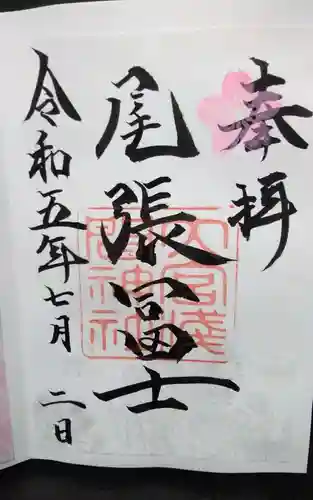 奉拝
尾張冨士
令和五年七月二日
大宮浅間神社